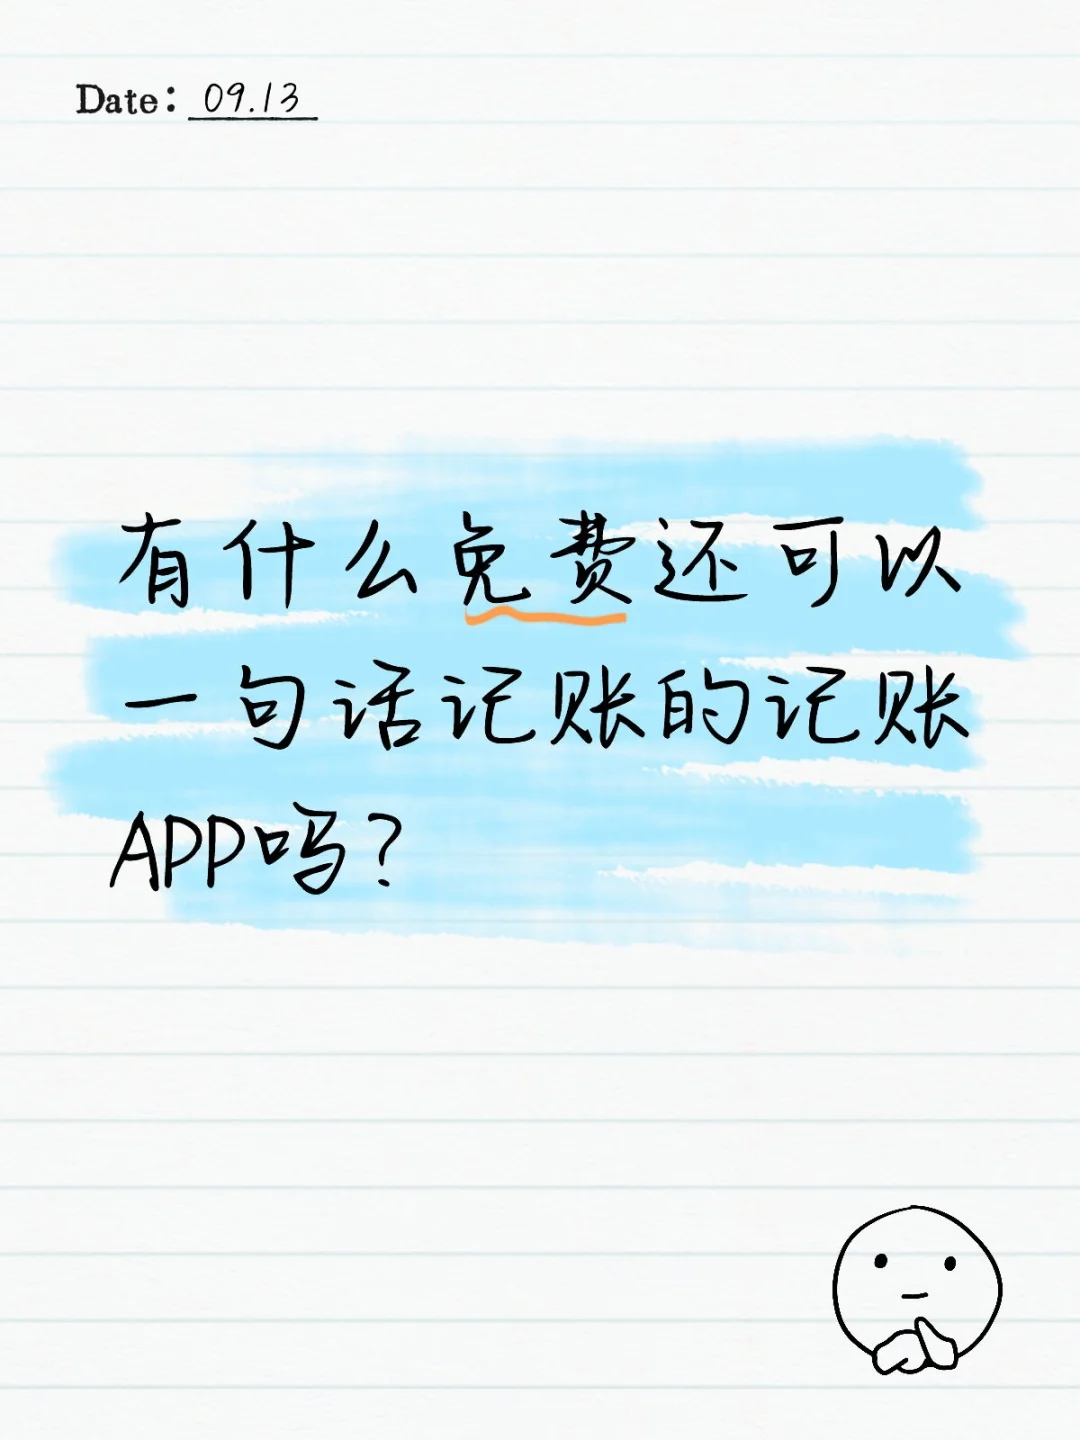 Date: 09.13
有什么免费还可以
一句话记账的记账
APP吗?